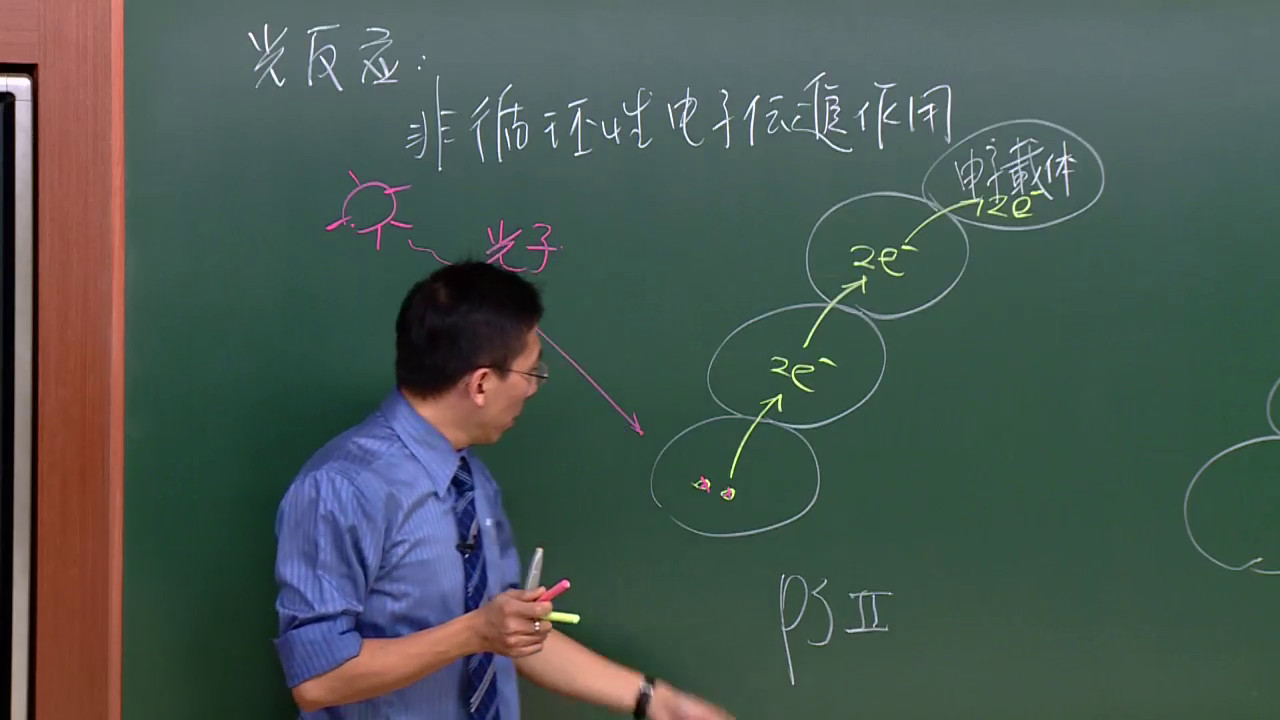 光反应:
非循环性电子传遞作用
电子載体
12e⁻
光子
2e⁻
2e⁻
PS II